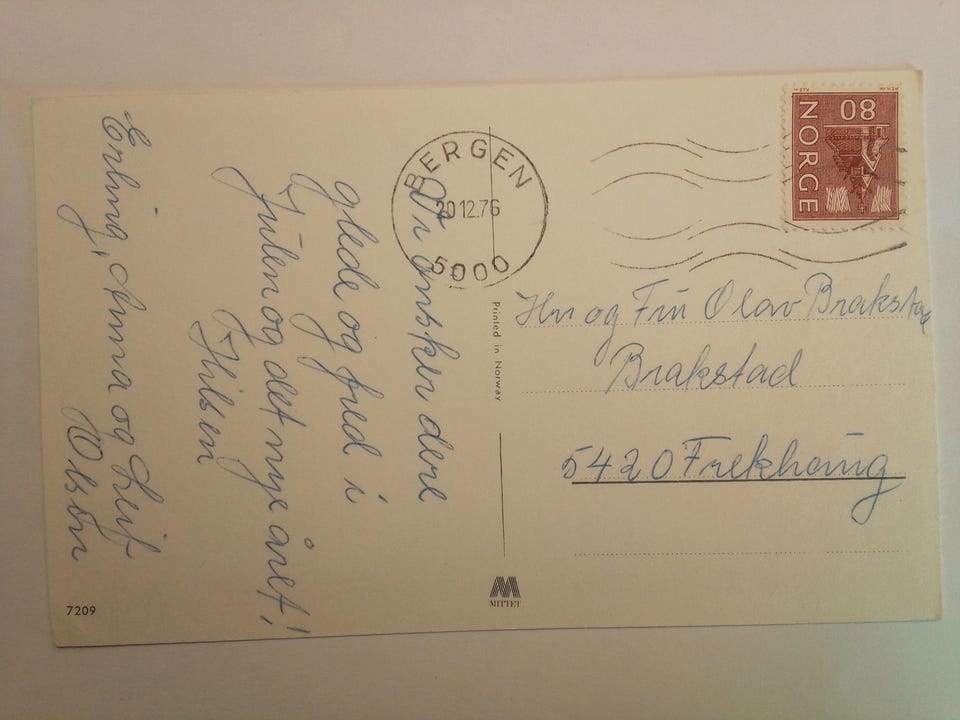 Vi ønsker dere
glede og fred i
Julen og det nye året!
Hilsen
Erling, Anna og Leif
Olsen
BERGEN
20.12.76
5000
NORGE
80
Hr og Fru Olav Brakstad
Brakstad
5420 Frekhaug
Printed in Norway
MITTET
7209